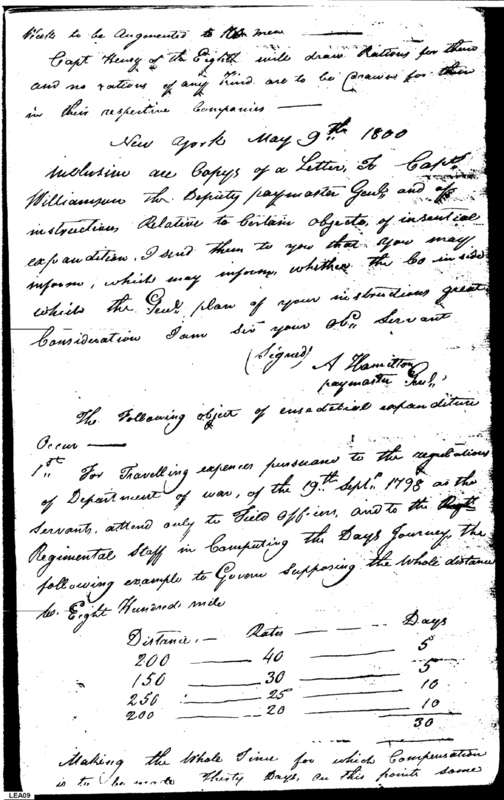 Week to be Augmented to men
Capt Henry of the Eighth will draw Rations for them
and no rations of any Kind are to be drawn for them
in their respective Companies
New York May 9th 1800
Inclusive are Copys of a Letter, To Captn
Williamson the Deputy paymaster Genl, and of
instructions Relative to Certain objects, of insential
expandition. I send them to you that you may
inform, which may inform, whether the Co inside
which the Genl plan of your instructions great
Consideration I am sir your Obt Servant
(Signed) A Hamilton
paymaster Genl,
The Following object of ensedetial expanditure
Occur
1st For Travelling expences pursuant to the regulations
of Department of war, of the 19th Sept 1798 as the
Servants, attend only to Field officirs, and to the
Regimental Staff in Computing the Days Journey, the
following example to Govern Supposing the Whole distance
be Eight Hundred mile
Distance. Rates Days
200 40 5
150 30 5
250 25 10
200 20 10
30
Making the Whole Time for which Compensation
is to be made Thirty Days, on this points some
LEA09